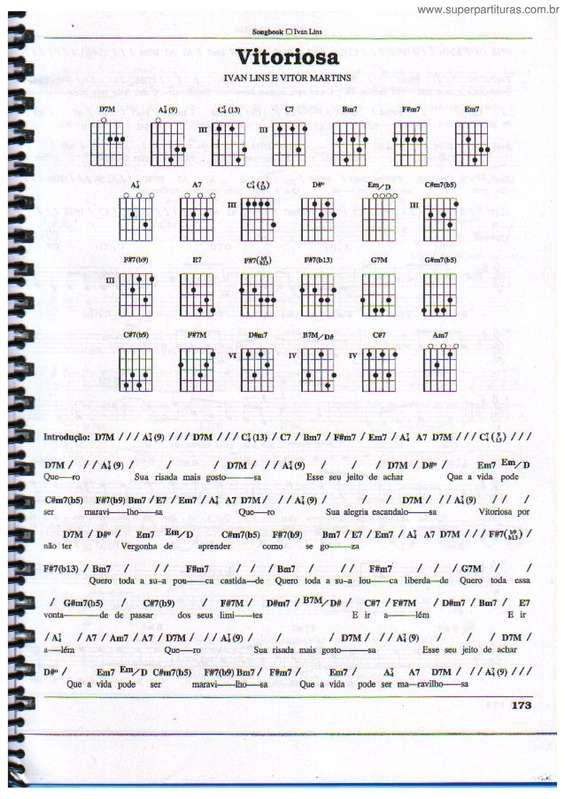 www.superpartituras.com.br
Songbook □ Ivan Lins
Vitoriosa
IVAN LINS E VITOR MARTINS
D7M A7/4(9) C7/4(13) C7 Bm7 F#m7 Em7
III III
A7/4 A7 C7/4(9/13) D#º Em/D C#m7(b5)
III III
F#7(b9) E7 F#7(b9/b13) F#7(b13) G7M G#m7(b5)
III
C#7(b9) F#7M D#m7 B7M/D# C#7 Am7
VI IV IV
Introdução: D7M / / / A7/4(9) / / / D7M / / / C7/4(13) / C7 / Bm7 / F#m7 / Em7 / A7/4 A7 D7M / / / C7/4(9/13) / / /
D7M / / / A7/4(9) / / / D7M / / / A7/4(9) / / / D7M / D#º / Em7 Em/D
Que—ro Sua risada mais gosto——sa Esse seu jeito de achar Que a vida pode
C#m7(b5) F#7(b9) Bm7 / E7 / Em7 / A7/4 A7 D7M / / / A7/4(9) / / / D7M / / / A7/4(9) / / /
ser maravi—lho—sa Que—ro Sua alegria escandalo—sa Vitoriosa por
D7M / D#º / Em7 Em/D C#m7(b5) F#7(b9) Bm7 / E7 / Em7 / A7/4 A7 D7M / / / F#7(b9/b13) /
não ter Vergonha de aprender como se go——za
F#7(b13) / Bm7 / / / F#m7 / / / Bm7 / / / F#m7 / / / G7M /
Quero toda a su—a pou—ca castida—de Quero toda a su—a lou—ca liberda—de Quero toda essa
/ G#m7(b5) / C#7(b9) / F#7M / D#m7 / B7M/D# / C#7 / F#7M / D#m7 / Bm7 / E7
vonta———de de passar dos seus limi—tes E ir a—lém E ir
/ A7/4 / A7 / Am7 / A7 / D7M / / / A7/4(9) / / / D7M / / / A7/4(9) / / / D7M /
a—lém Que—ro Sua risada mais gosto——sa Esse seu jeito de achar
D#º / Em7 Em/D C#m7(b5) F#7(b9) Bm7 / F#m7 / Em7 / A7/4 A7 D7M / / / A7/4(9) / / /
Que a vida pode ser maravi—lho—sa Que a vida pode ser ma—ravilho—sa
173